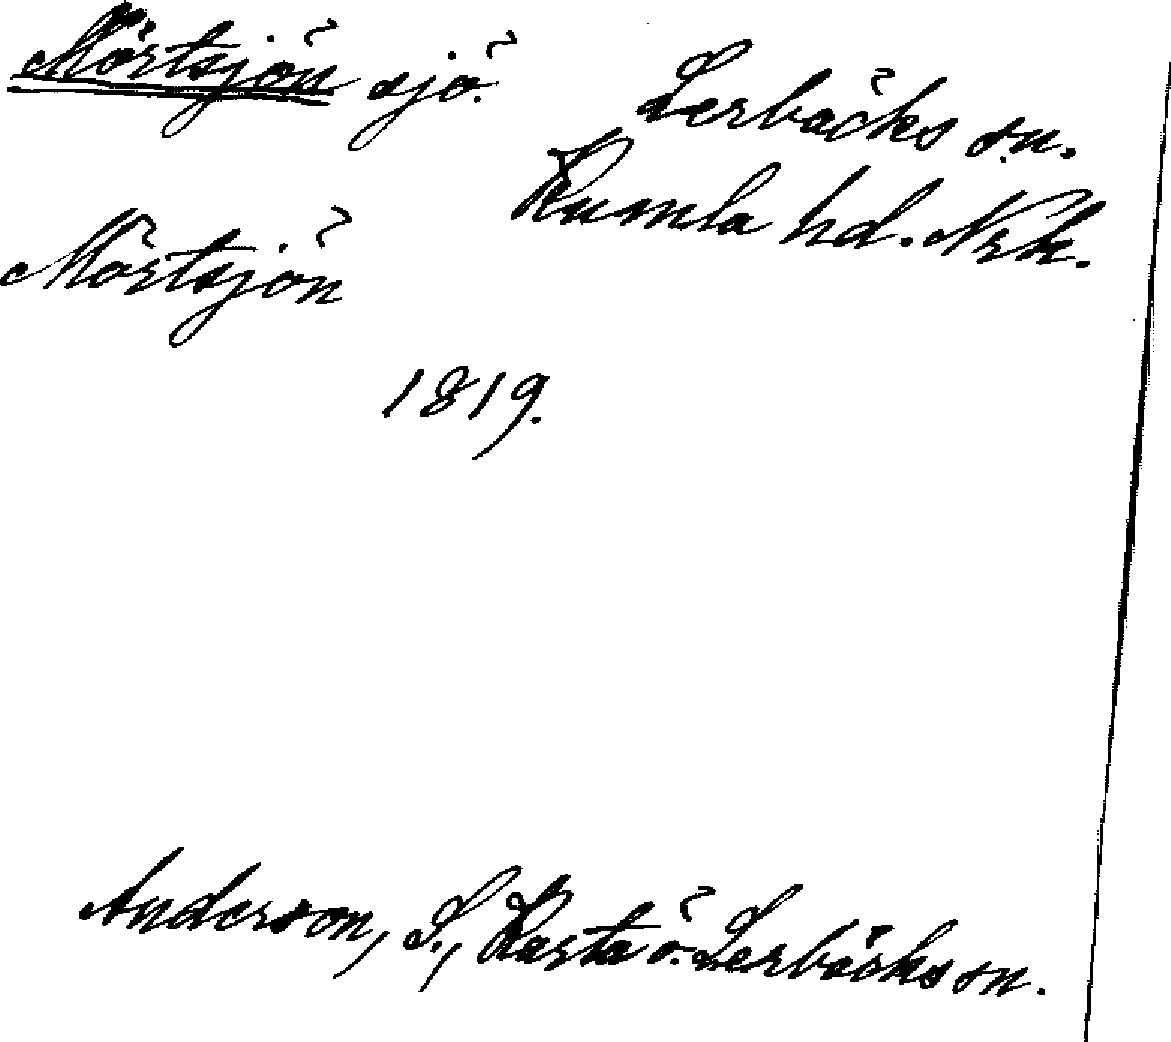 Mörtsjön sjö.
Lerbäcks sn.
Kumla hd. Nrk.
Mörtsjön
1819.
Anderson, S., Karta ö. Lerbäcks sn.